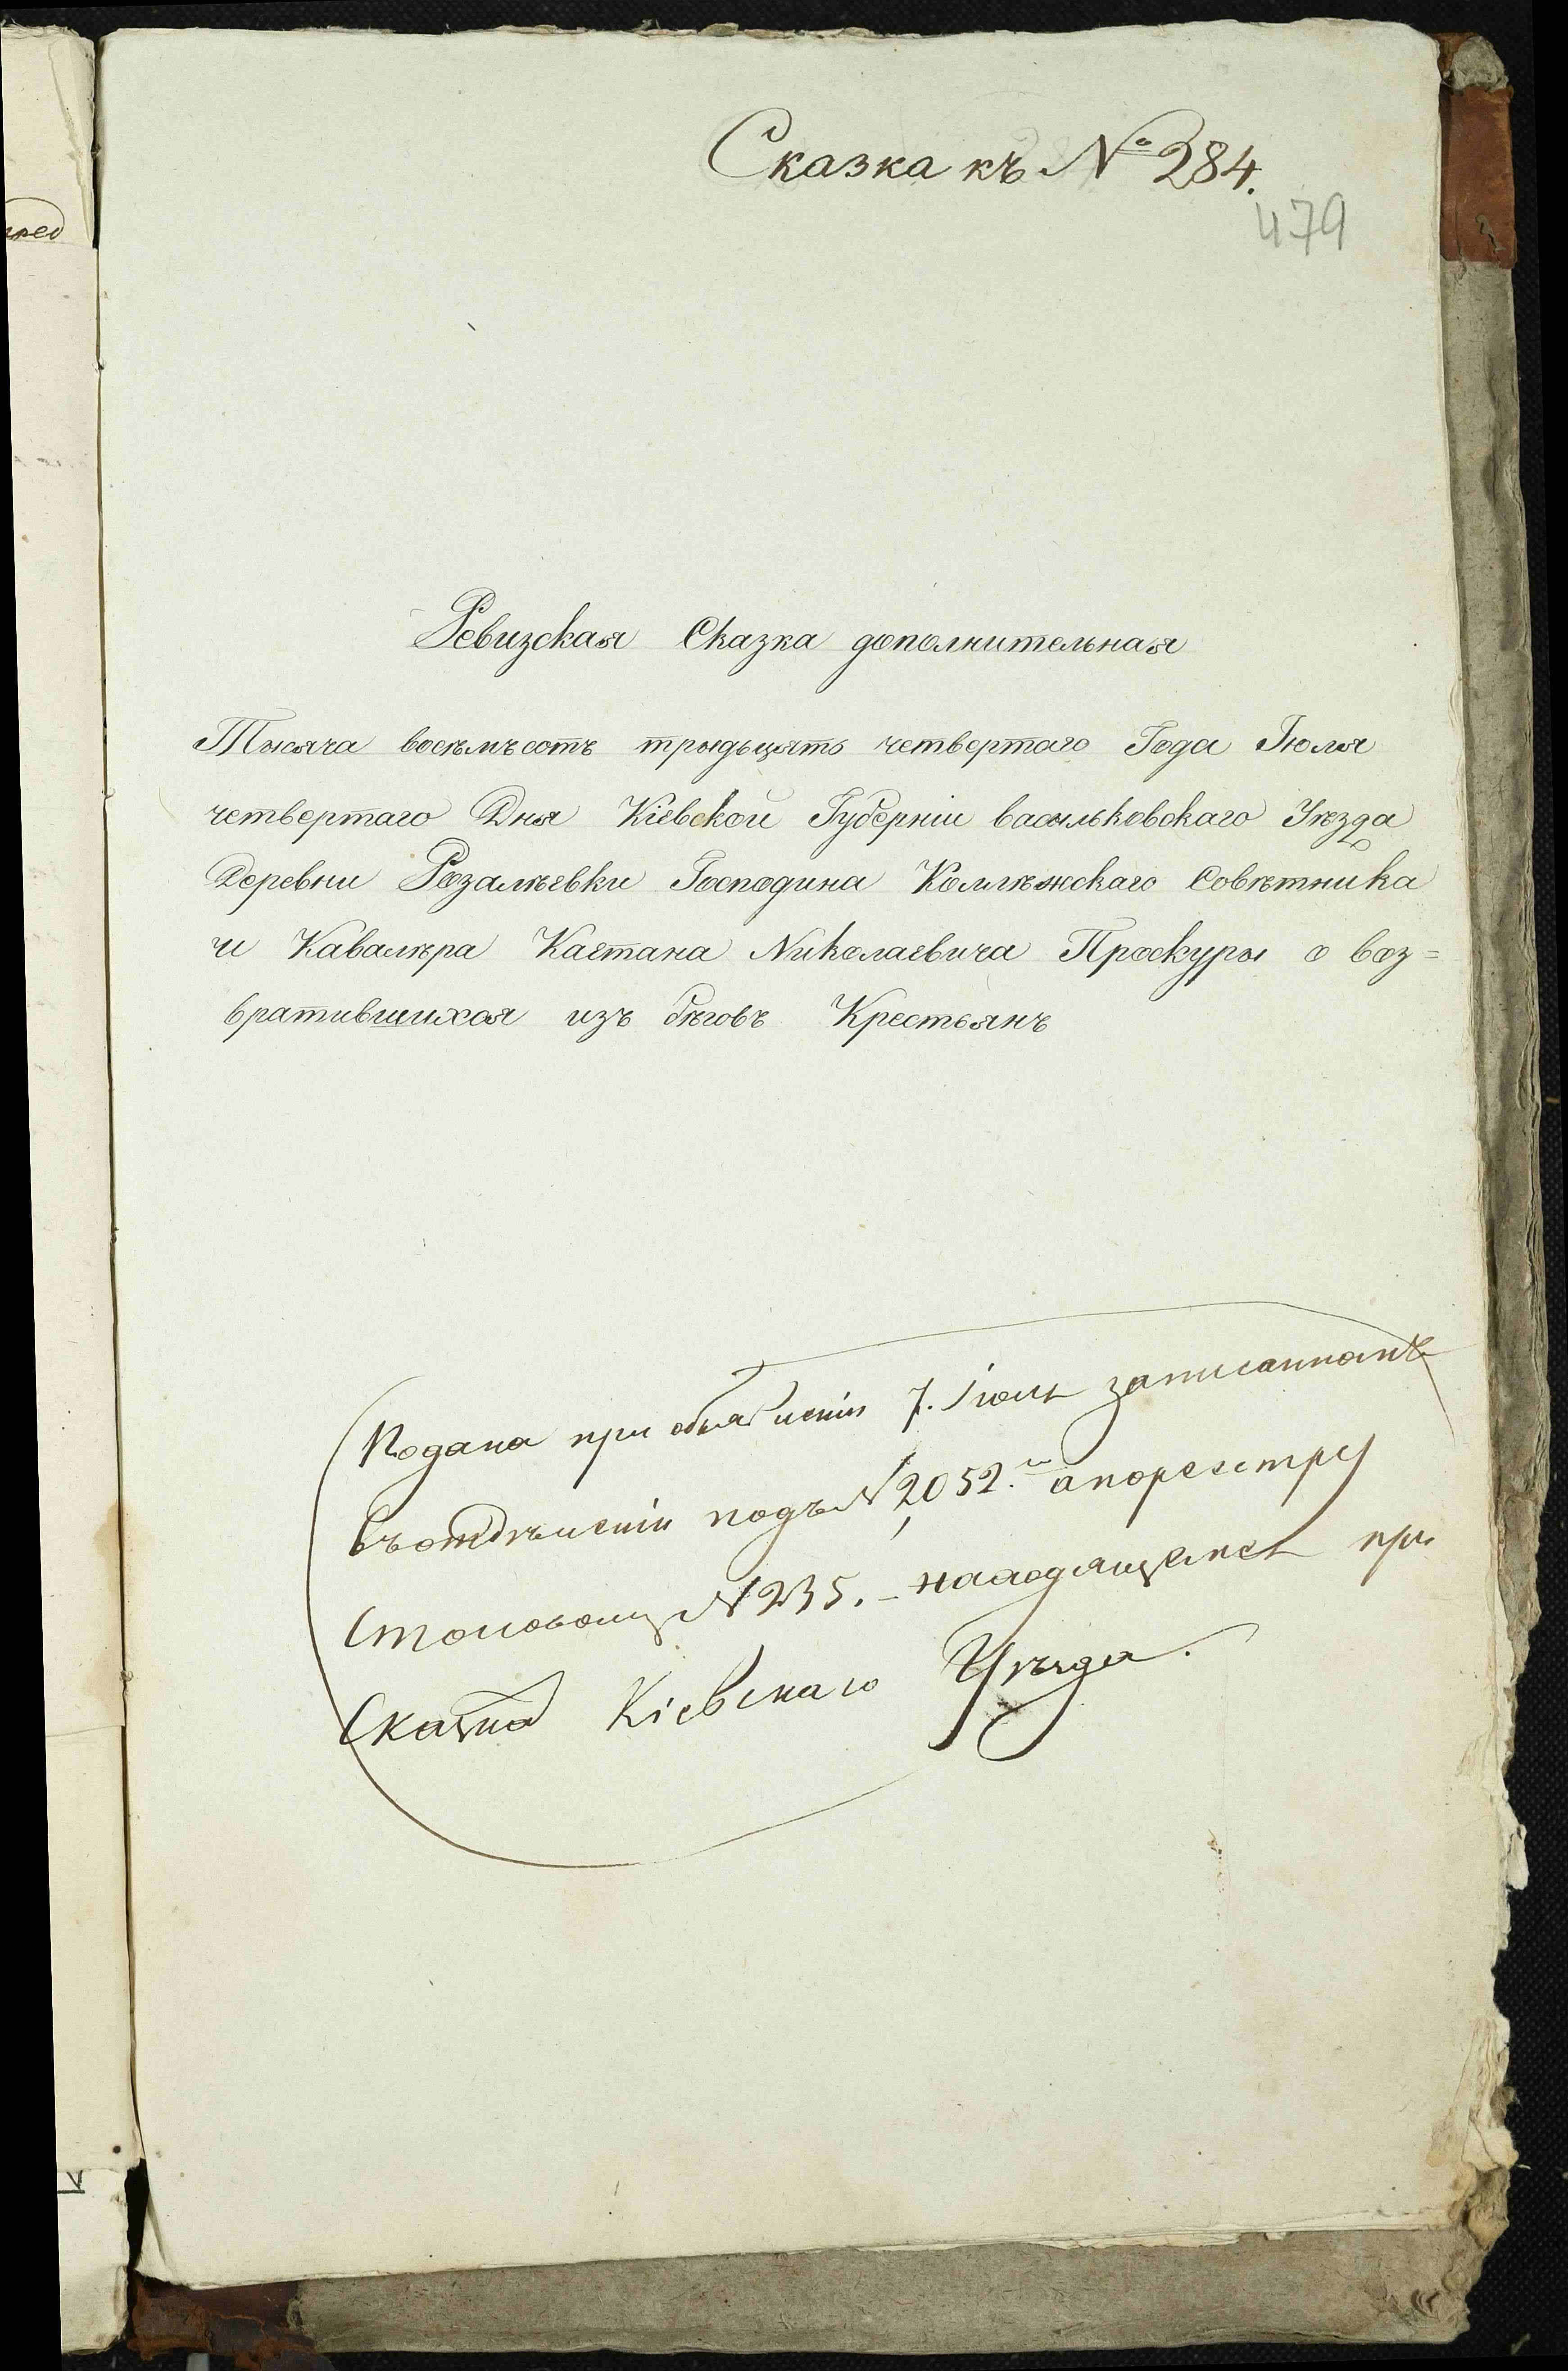 Сказка къ № 284.
479
Ревизская Сказка дополнительная
Тысяча восемъсотъ трыдьцять четвертаго Года Іюля
четвертаго Дня Кіевской Губерніи васильковскаго Уѣзда
Деревни Розалѣевки Господина Коллѣжскаго Совѣтника
и Кавалѣра Каетана Николаевича Проскуры о воз=
вратившихся изъ бѣговъ Крестьянъ
Подана при объявленіи 7. Іюля записанномъ
въ отдѣленіи подъ N 2052. а по реестру
Столовому N 235. - находящемся при
Сказкѣ Кіевскаго Уѣзда.